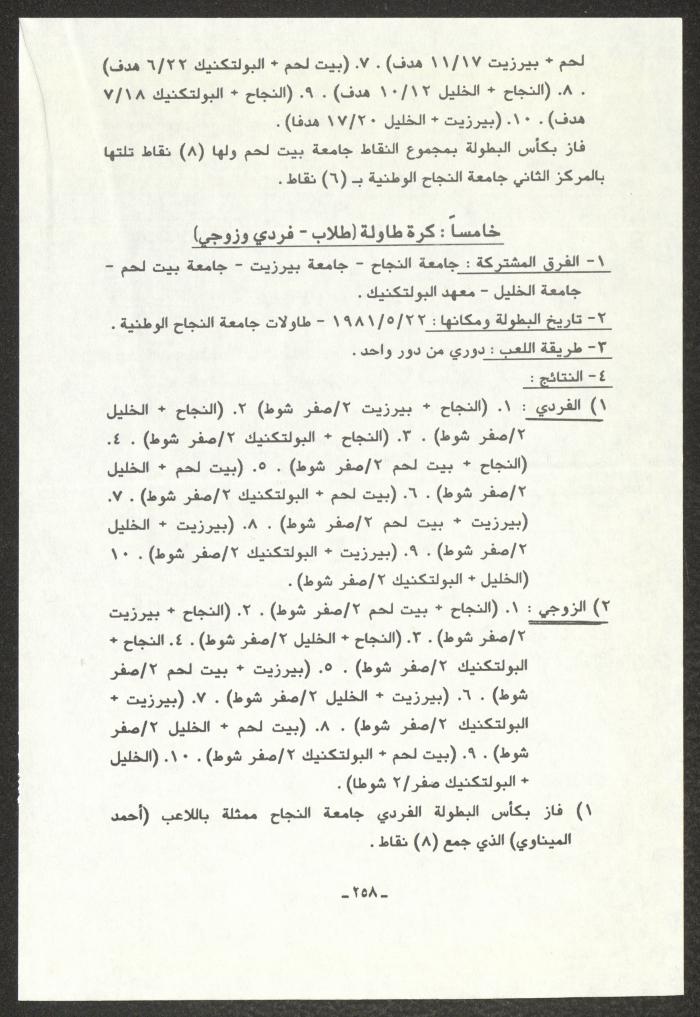 لحم + بيرزيت ١١/١٧ هدف) . ٧. (بيت لحم + البولتكنيك ٦/٢٢ هدف)
. ٨. (النجاح + الخليل ١٠/١٢ هدف) . ٩. (النجاح + البولتكنيك ٧/١٨
هدف) . ١٠. (بيرزيت + الخليل ١٧/٢٠ هدفا) .
فاز بكأس البطولة بمجموع النقاط جامعة بيت لحم ولها (٨) نقاط تلتها
بالمركز الثاني جامعة النجاح الوطنية بـ (٦) نقاط .
خامساً : كرة طاولة (طلاب - فردي وزوجي)
١- الفرق المشتركة : جامعة النجاح - جامعة بيرزيت - جامعة بيت لحم -
جامعة الخليل - معهد البولتكنيك .
٢- تاريخ البطولة ومكانها : ١٩٨١/٥/٢٢ - طاولات جامعة النجاح الوطنية .
٣- طريقة اللعب : دوري من دور واحد .
٤- النتائج :
١) الفردي : ١. (النجاح + بيرزيت ٢/صفر شوط) ٢. (النجاح + الخليل
٢/صفر شوط) . ٣. (النجاح + البولتكنيك ٢/صفر شوط) . ٤.
(النجاح + بيت لحم ٢/صفر شوط) . ٥. (بيت لحم + الخليل
٢/صفر شوط) . ٦. (بيت لحم + البولتكنيك ٢/صفر شوط) . ٧.
(بيرزيت + بيت لحم ٢/صفر شوط) . ٨. (بيرزيت + الخليل
٢/صفر شوط) . ٩. (بيرزيت + البولتكنيك ٢/صفر شوط) . ١٠
(الخليل + البولتكنيك ٢/صفر شوط) .
٢) الزوجي : ١. (النجاح + بيت لحم ٢/صفر شوط) . ٢. (النجاح + بيرزيت
٢/صفر شوط) . ٣. (النجاح + الخليل ٢/صفر شوط) . ٤. النجاح +
البولتكنيك ٢/صفر شوط) . ٥. (بيرزيت + بيت لحم ٢/صفر
شوط) . ٦. (بيرزيت + الخليل ٢/صفر شوط) . ٧. (بيرزيت +
البولتكنيك ٢/صفر شوط) . ٨. (بيت لحم + الخليل ٢/صفر
شوط) . ٩. (بيت لحم + البولتكنيك ٢/صفر شوط) . ١٠. (الخليل
+ البولتكنيك صفر/٢ شوطا) .
١) فاز بكأس البطولة الفردي جامعة النجاح ممثلة باللاعب (أحمد
الميناوي) الذي جمع (٨) نقاط .
ـ ٢٥٨ ـ